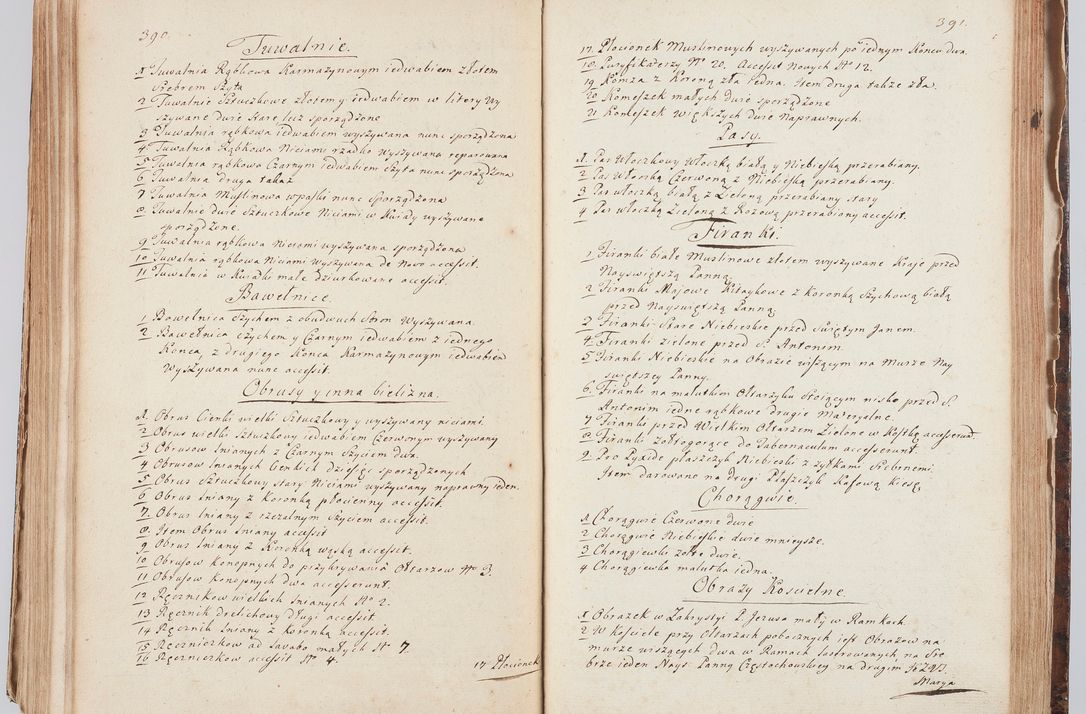 390.
Tuwalnie.
1 Tuwalnia Rąbkowa Karmazynowym iedwabiem złotem
srebrem szyta
2 Tuwalnie Sztuczkowe złotem y iedwabiem w litery wy
szywane dwie stare iuż sporządzone
3 Tuwalnia rąbkowa iedwabiem wyszywana nunc sporządzona
4 Tuwalnia Rąbkowa Niciami rzadko Wyszywana reparowana
5 Tuwalnia rąbkowa Czarnym iedwabiem szyta nunc sporządzona
6 Tuwalnia druga takaż
7 Tuwalnia Muślinowa w paski nunc sporządzona
8 Tuwalnie dwie Sztuczkowe Niciami w Kwiaty wyszywane
sporządzone.
9 Tuwalnia rąbkowa Niciami wyszywana sporządzona
10 Tuwalnia rąbkowa Niciami wyszywana de Novo accessit.
11 Tuwalnia w Kwiatki małe dziurkowane accessit.
Bawełnice.
1 Bawełnica Szychem z obudwuch Stron Wyszywana.
2 Bawełnica szychem y Czarnym iedwabiem z iednego
Końca, z drugiego Końca Karmazynowym iedwabiem
Wyszywana nunc accessit.
Obrusy y inna bielizna.
1. Obrus Cienki wielki Sztuczkowy y wyszywany niciami.
2 Obrus wielki Sztuczkowy iedwabiem Czerwonym wyszywany
3 Obrusow lnianych z Czarnym Szyciem dwa.
4 Obrusow lnianych Cienkich dziesięc sporządzonych
5 Obrus Sztuczkowy stary Niciami wyszywany naprawny ieden.
6 Obrus lniany z koronką płocienny accessit
7. Obrus lniany z rzezalnym Szyciem accessit.
8. Item Obrus lniany accessit
9 Obrus lniany z Koronką wąską accessit.
10 Obrusow konopnych do przykrywania Ołtarzow No 3.
11 Obrusow konopnych dwa accesserunt.
12 Ręcznikow wielkich lnianych No 2.
13 Ręcznik drelichowy długi accessit
14 Ręcznik lniany z koronką accessit.
15 Ręczniczkow ad Lavabo małych No 7
16 Ręczniczkow accessit No 4.
17 Płocionek
391.
17. Płocionek Muslinowych wyszywanych po iednym Koncu dwa.
18. Puryfikaterzy No 20. Accessit Nowych No 12.
19 Komża z Koroną zła iedna. Item druga także zła.
20 Komeszek małych dwie sporządzone
21 Komeszek większych dwie Naprawnych.
Pasy.
1. Pas włoczkowy włoczką białą y Niebieską przerabiany.
2 Pas włoczką Czerwoną z Niebieską przerabiany.
3 Pas włoczką białą z Zieloną przerabiany stary
4 Pas włoczką Zieloną z Rożową przerabiany accessit.
Firanki.
1 Firanki białe Muslinowe złotem wyszywane Kraje przed
Nayswiętszą Panną.
2 Firanki Majowe Kitaykowe z koronką Szychową białą
przed Nayswiętszą Panną
3 Firanki Stare Niebieskie przed Swiętym Janem.
4 Firanki zielone przed S. Antonim.
5 Firanki Niebieskie na Obrazie wiszącym na Murze Nay
swiętszey Panny.
6. Firanki na malutkim Ołtarzyku stoiącym nisko przed S.
Antonim iedne rąbkowe drugie Materyalne.
7 Firanki przed Wielkim Ołtarzem Zielone w Kostkę accesserunt
8 Firanki żołtogorące do Tabernaculum accesserunt.
9. Pro Pyxide płaszczyk Niebieski z żyłkami Srebrnemi
Item darowano na drugi Płaszczyk Rafową kiesę.
Chorągwie.
1 Chorągwie Czerwone dwie
2 Chorągwie Niebieskie dwie mnieysze.
3 Chorągiewki żołte dwie.
4 Chorągiewka malutka iedna.
Obrazy Koscielne.
1 Obrazek w Zakrystyi P. Jezusa mały w Ramkach
2 W kościele przy Ołtarzach pobocznych iest Obrazow na
murze wiszących dwa w Ramach lasirowanych na Sre
brze ieden Nays. Panny Częstochowskiey na drugim
Marya